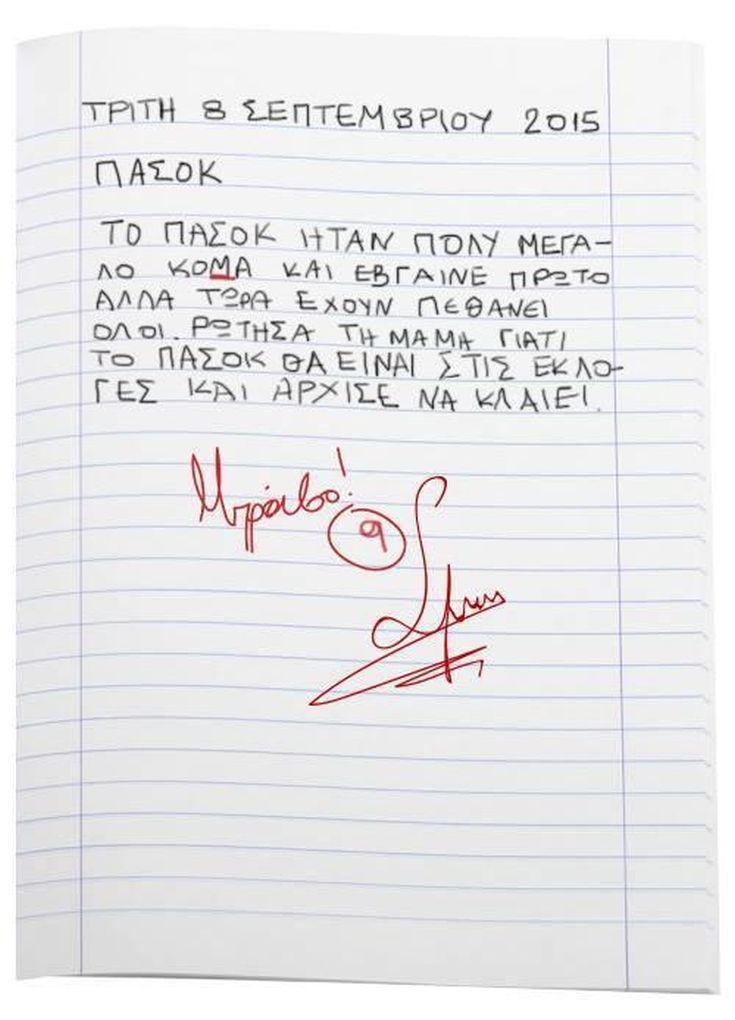 ΤΡΙΤΗ 8 ΣΕΠΤΕΜΒΡΙΟΥ 2015
ΠΑΣΟΚ
ΤΟ ΠΑΣΟΚ ΗΤΑΝ ΠΟΛΥ ΜΕΓΑ-
ΛΟ ΚΟΜΑ ΚΑΙ ΕΒΓΑΙΝΕ ΠΡΩΤΟ
ΑΛΛΑ ΤΩΡΑ ΕΧΟΥΝ ΠΕΘΑΝΕΙ
ΟΛΟΙ. ΡΩΤΗΣΑ ΤΗ ΜΑΜΑ ΓΙΑΤΙ
ΤΟ ΠΑΣΟΚ ΘΑ ΕΙΝΑΙ ΣΤΙΣ ΕΚΛΟ-
ΓΕΣ ΚΑΙ ΑΡΧΙΣΕ ΝΑ ΚΛΑΙΕΙ.
Μπράβο!
9